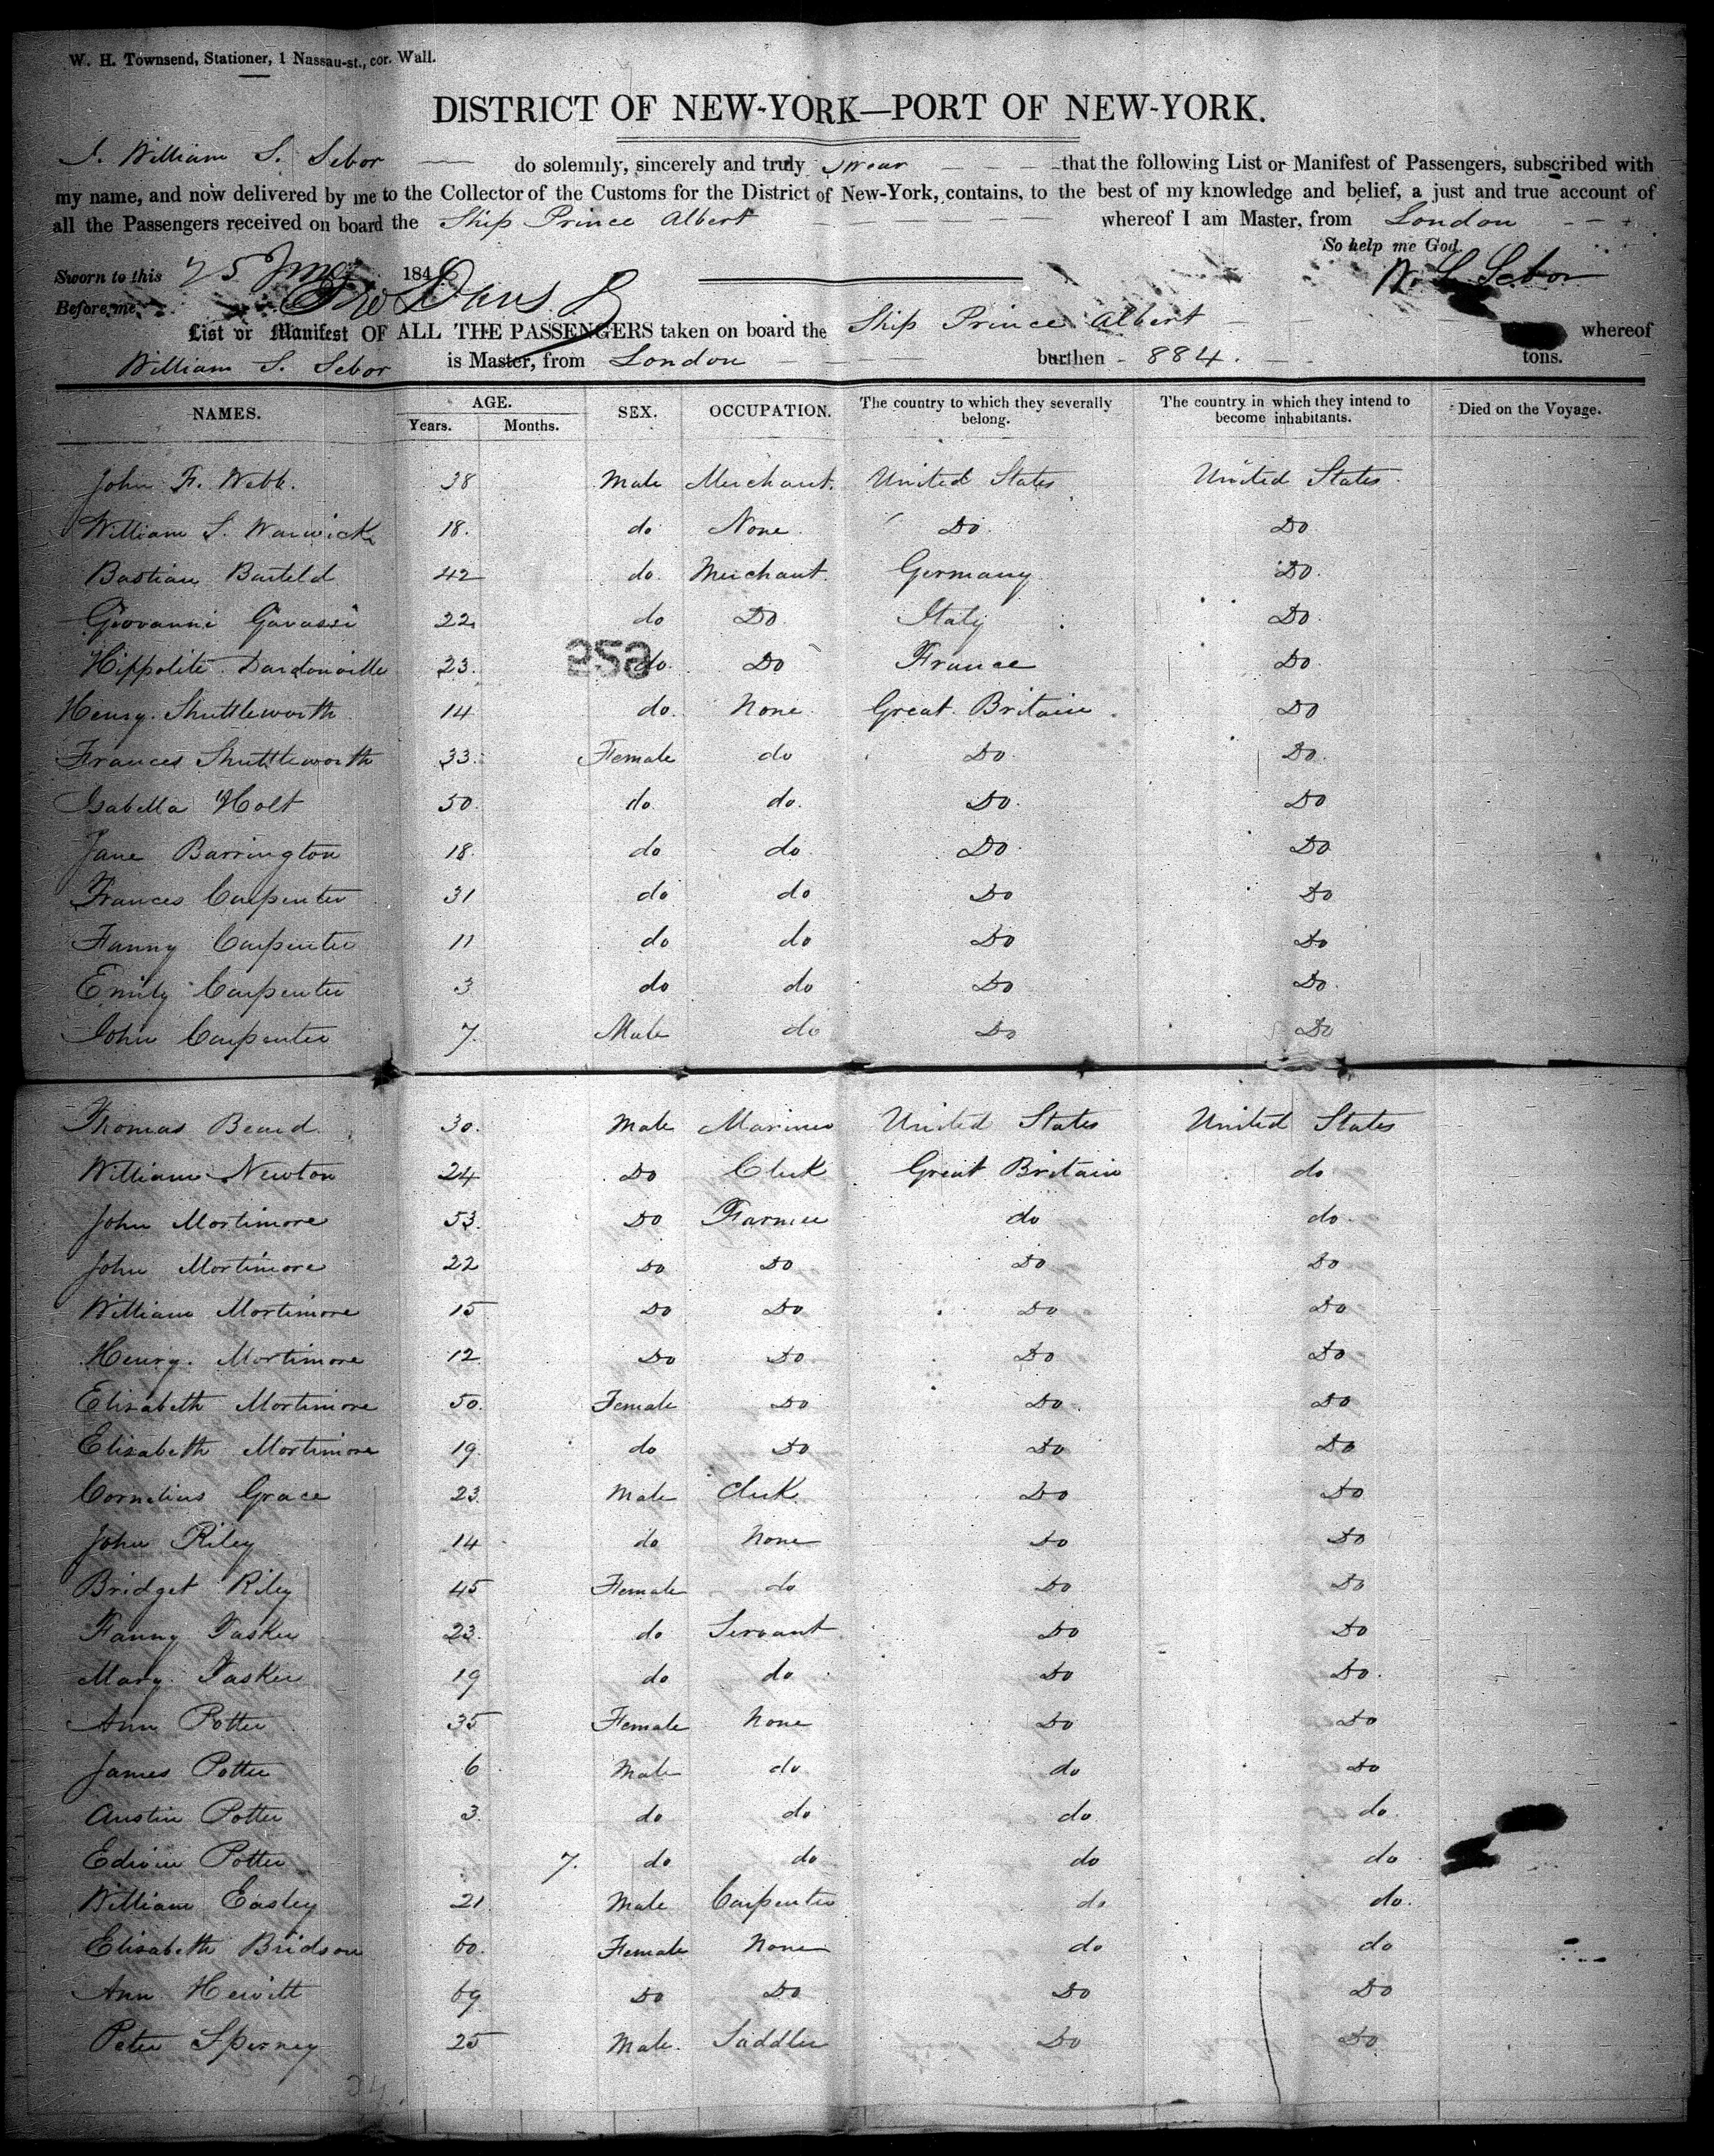 W. H. Townsend, Stationer, 1 Nassau-st., cor. Wall.
DISTRICT OF NEW-YORK—PORT OF NEW-YORK.
I, William S. Sebor do solemnly, sincerely and truly swear that the following List or Manifest of Passengers, subscribed with
my name, and now delivered by me to the Collector of the Customs for the District of New-York, contains, to the best of my knowledge and belief, a just and true account of
all the Passengers received on board the Ship Prince Albert whereof I am Master, from London
So help me God.
Sworn to this 25 184 W. S. Sebor
Before me,
List or Manifest OF ALL THE PASSENGERS taken on board the Ship Prince Albert whereof
William S. Sebor is Master, from London burthen 884. tons.
NAMES. AGE. Years. Months. SEX. OCCUPATION. The country to which they severally belong. The country in which they intend to become inhabitants. Died on the Voyage.
John F. Webb. 38 Male Merchant. United States United States
William S. Warwick 18. do None Do Do
Bastian Barteld 42 do. Merchant. Germany Do.
Giovanni Gavassi 22 do Do Italy Do.
Hippolite Dardonville 23. do. Do France Do.
Henry Shuttleworth 14 do. None Great Britain Do
Frances Shuttleworth 33. Female do Do Do.
Isabella Holt 50. do. do. Do. Do
Jane Barrington 18. do do Do. Do
Frances Carpenter 31 do do Do Do
Fanny Carpenter 11 do do Do Do
Emily Carpenter 3 do do Do Do.
John Carpenter 7. Male do Do Do
Thomas Beard 30. Male Mariner United States United States
William Newton 24 Do Clerk Great Britain do
John Mortimore 53. Do Farmer do do.
John Mortimore 22 Do Do Do Do
William Mortimore 15 Do Do Do Do
Henry Mortimore 12 Do Do Do Do
Elisabeth Mortimore 50. Female Do Do Do
Elisabeth Mortimore 19. do Do Do Do
Cornelius Grace 23. Male Clerk Do Do
John Riley 14 do None Do Do
Bridget Riley 45 Female do Do Do
Fanny Tasker 23. do Servant Do Do
Mary Tasker 19 do do Do Do.
Ann Potter 35 Female None Do Do
James Potter 6 Male do do Do
Austin Potter 3. do do do do.
Edwin Potter 7. do do do do
William Easley 21 Male Carpenter do do.
Elisabeth Bridson 60. Female None do do
Ann Hewitt 69 Do Do Do Do
Peter Sperney 25 Male. Saddler Do Do